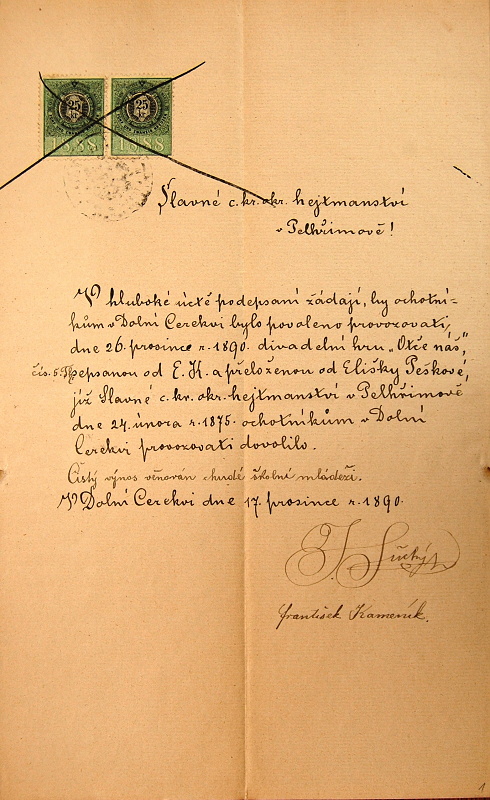 25 kr 25 kr
1888 1888
Slavné c. kr. okr. hejtmanství
v Pelhřimově!
V hluboké úctě podepsaní žádají, by ochotní-
kům v Dolní Cerekvi bylo povoleno provozovati,
dne 26. prosince r. 1890. divadelní hru „Otče náš",
čís. 5. sepsanou od E. H. a přeloženou od Elišky Peškové,
již Slavné c. kr. okr. hejtmanství v Pelhřimově
dne 24. února r. 1875. ochotníkům v Dolní
Cerekvi provozovati dovolilo.
Čistý výnos věnován chudé školní mládeži.
V Dolní Cerekvi dne 17. prosince r. 1890.
J. Suchý
František Kameník.
1